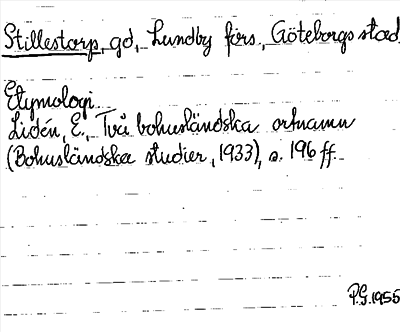 Stillestorp, gd, Lundby förs., Göteborgs stad.
Etymologi.
Lidén, E., Två bohusländska ortnamn
(Bohusländska studier, 1933), s. 196 ff.
P.G. 1955